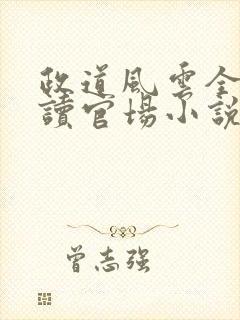 政道風雲全
讀官場小說
曾志强